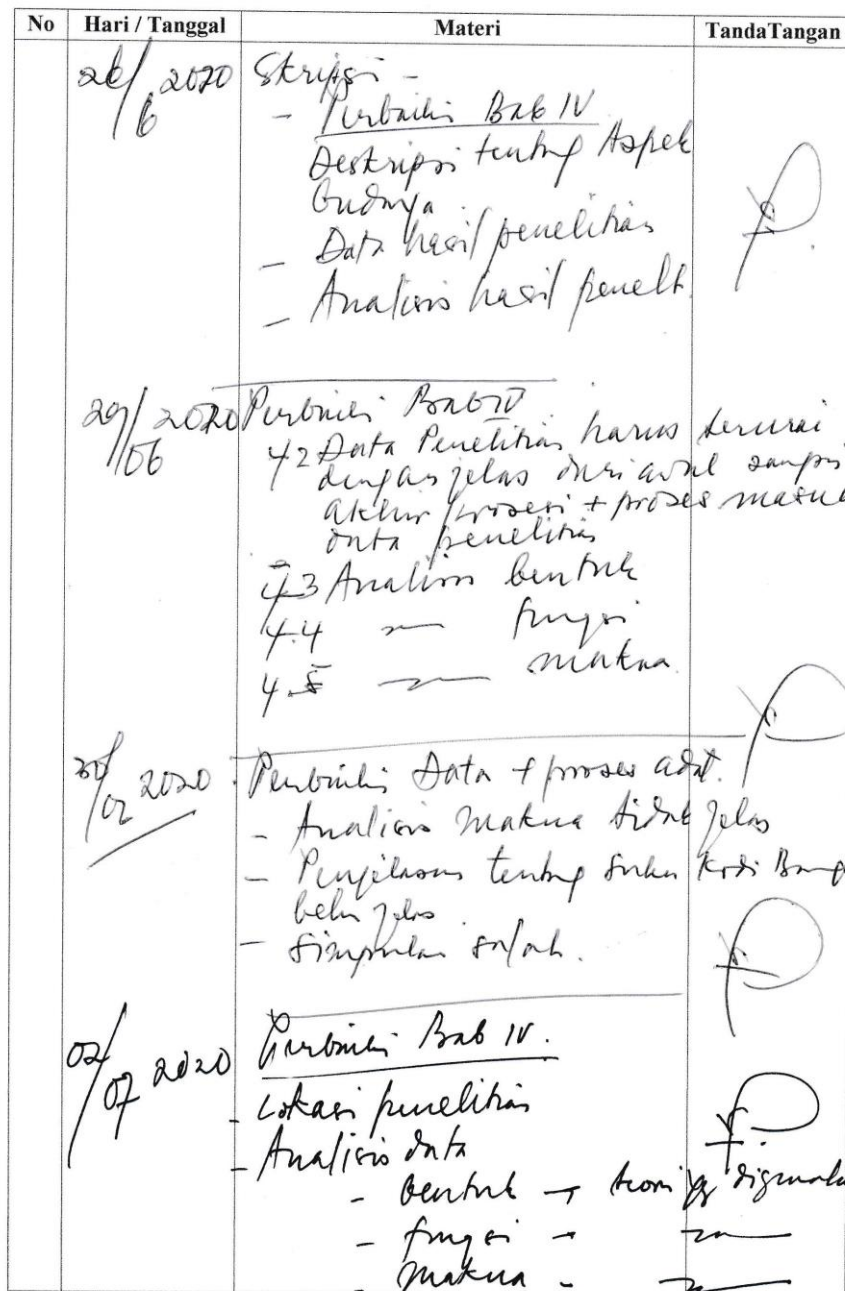 No Hari / Tanggal Materi TandaTangan
26/6 2020 Skripsi -
- Perbaiki Bab IV
Deskripsi tentang Aspek
budaya
- Data hasil penelitian
- Analisis hasil penelit.
29/06 2020 Perbaiki Bab IV
4.2 Data Penelitian harus terurai
dengan jelas dari awal sampai
akhir prosesi + proses masuk
data penelitian
4.3 Analisis bentuk
4.4 〃 fungsi
4.5 〃 makna
30/ 2020 Perbaiki Data + proses adat.
- Analisis makna tidak jelas
- Penjelasan tentang suku Kodi Bang
belum jelas
- Simpulan salah.
02/07 2020 Perbaiki Bab IV.
- Lokasi penelitian
- Analisis data
- bentuk → teori yg digunaka
- fungsi → 〃
- makna - 〃